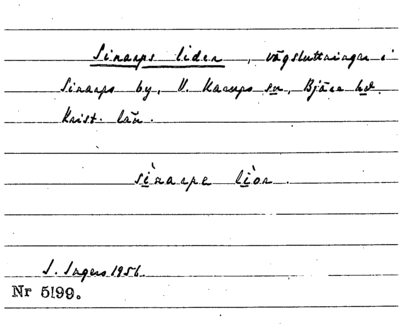 Sinarps liden, vägsluttningar i
Sinarps by, V. Karups sn, Bjäre hd.
Krist. län.
sinarpe lion.
S. Ingers 1956.
Nr 5199.